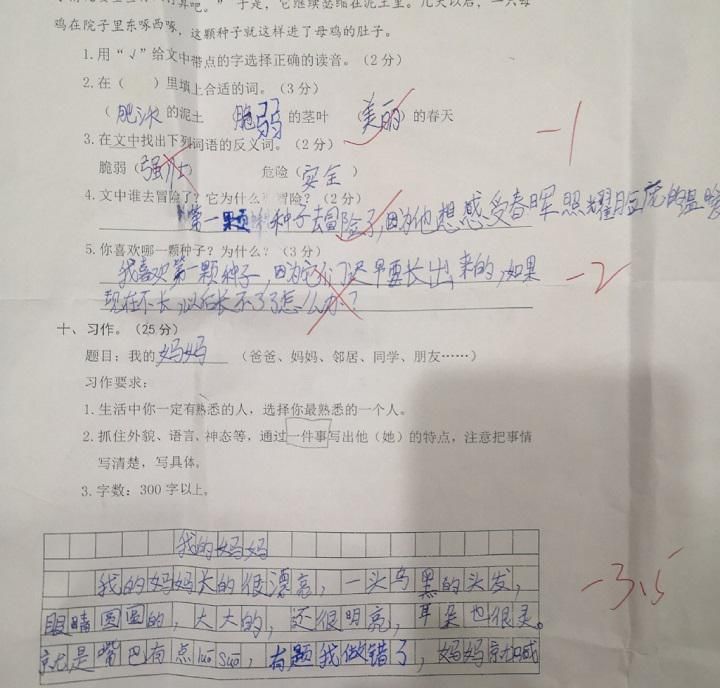 算吧。”于是，它继续瑟缩在泥土里。几天以后，一只母
鸡在院子里东啄西啄，这颗种子就这样进了母鸡的肚子。
1.用“√”给文中带点的字选择正确的读音。（2分）
2.在（ ）里填上合适的词。（3分）
（肥沃的泥土 脆弱的茎叶 （美丽）的春天
3.在文中找出下列词语的反义词。（2分）
脆弱（强壮） 危险（安全）
4.文中谁去冒险了？它为什么冒险？（2分）
第一颗种子去冒险了，因为他想感受春晖照耀脸庞的温暖
5.你喜欢哪一颗种子？为什么？（3分）
我喜欢第一颗种子，因为它们迟早要长出来的，如果
现在不长，以后长不了了怎么办？
十、习作。（25分）
题目：我的妈妈（爸爸、妈妈、邻居、同学、朋友……）
习作要求：
1.生活中你一定有熟悉的人，选择你最熟悉的一个人。
2.抓住外貌、语言、神态等，通过一件事写出他（她）的特点，注意把事情
写清楚，写具体。
3.字数：300字以上。
我的妈妈
我的妈妈长的很漂亮，一头乌黑的头发，
眼睛圆圆的，大大的，还很明亮，耳朵也很灵。
就是嘴巴有点luō suō，有题我做错了，妈妈就喊
-1
-2
-3.5